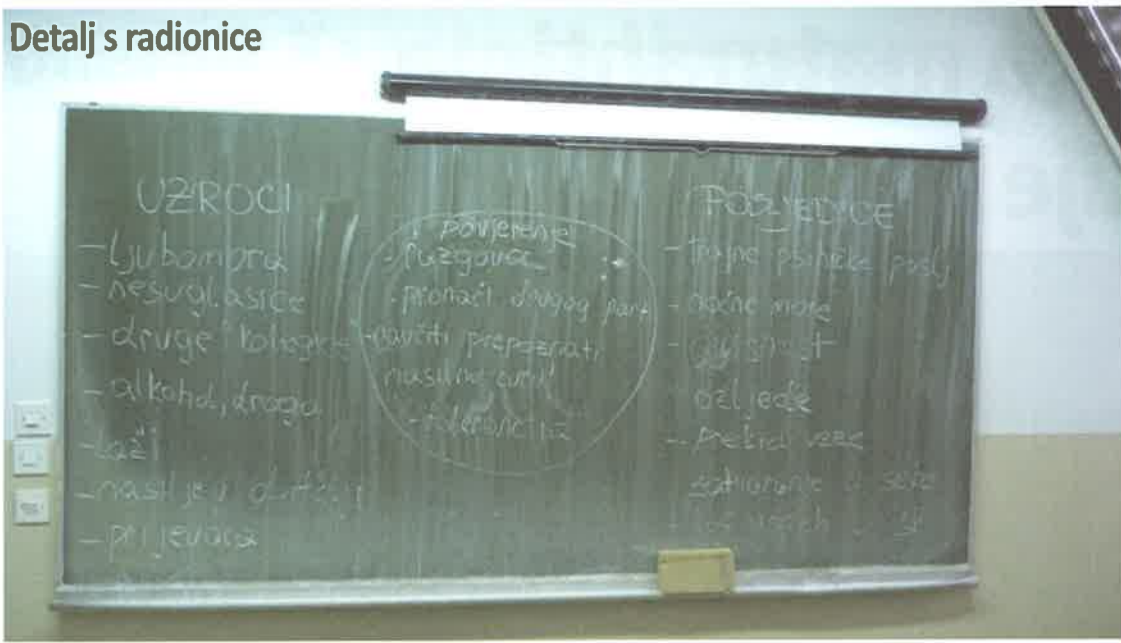 Detalj s radionice
UZROCI
- ljubomora
- nesuglasice
- druge
- alkohol, droga
- laži
- nasilje u
- prijevara
povjerenje
- razgovor
- pronaći drugog part
- naučiti prepoznati
nasilne
- tolerancija
POSLJEDICE
- trajne psihičke poslj
- noćne more
ozljede
- prekid veze
zatvaranje u sebe